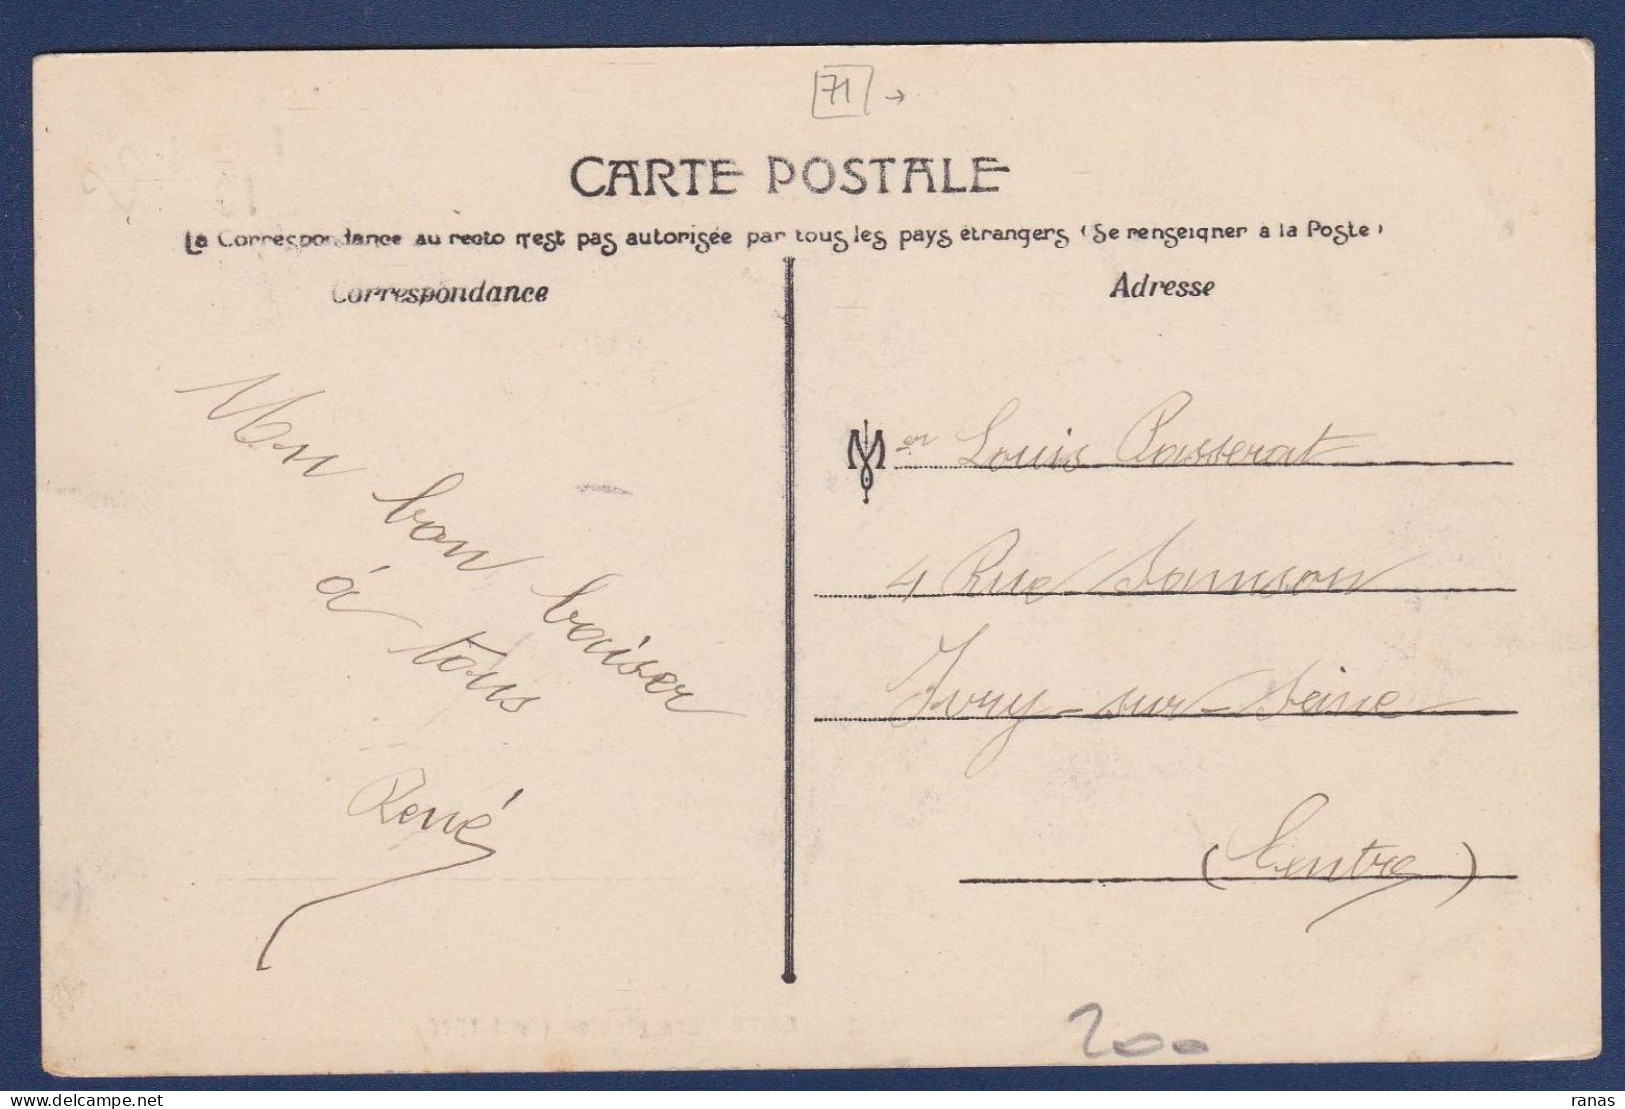 71 →
CARTE POSTALE
La Correspondance au recto n'est pas autorisée par tous les pays étrangers (Se renseigner à la Poste)
Correspondance
Adresse
Mon bon baiser
à tous
René
Mer Louis Passerat
4 Rue Samson
Ivry-sur-Seine
(Centre)
200
ranas